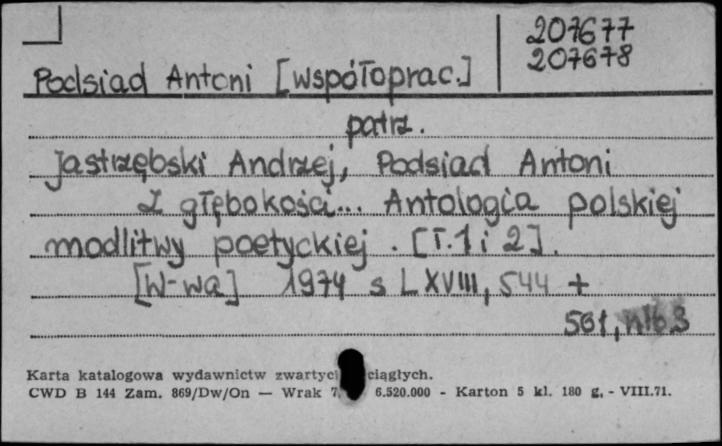 207677
207678
Podsiad Antoni [współoprac.]
patrz.
Jastrzębski Andrzej, Podsiad Antoni
Z głębokości... Antologia polskiej
modlitwy poetyckiej. [T.1 i 2].
[W-wa] 1974 s LXVIII, 544 +
561, nlb 3
Karta katalogowa wydawnictw zwartyc ciągłych.
CWD B 144 Zam. 869/Dw/On — Wrak 7. 6.520.000 - Karton 5 kl. 180 g. - VIII.71.